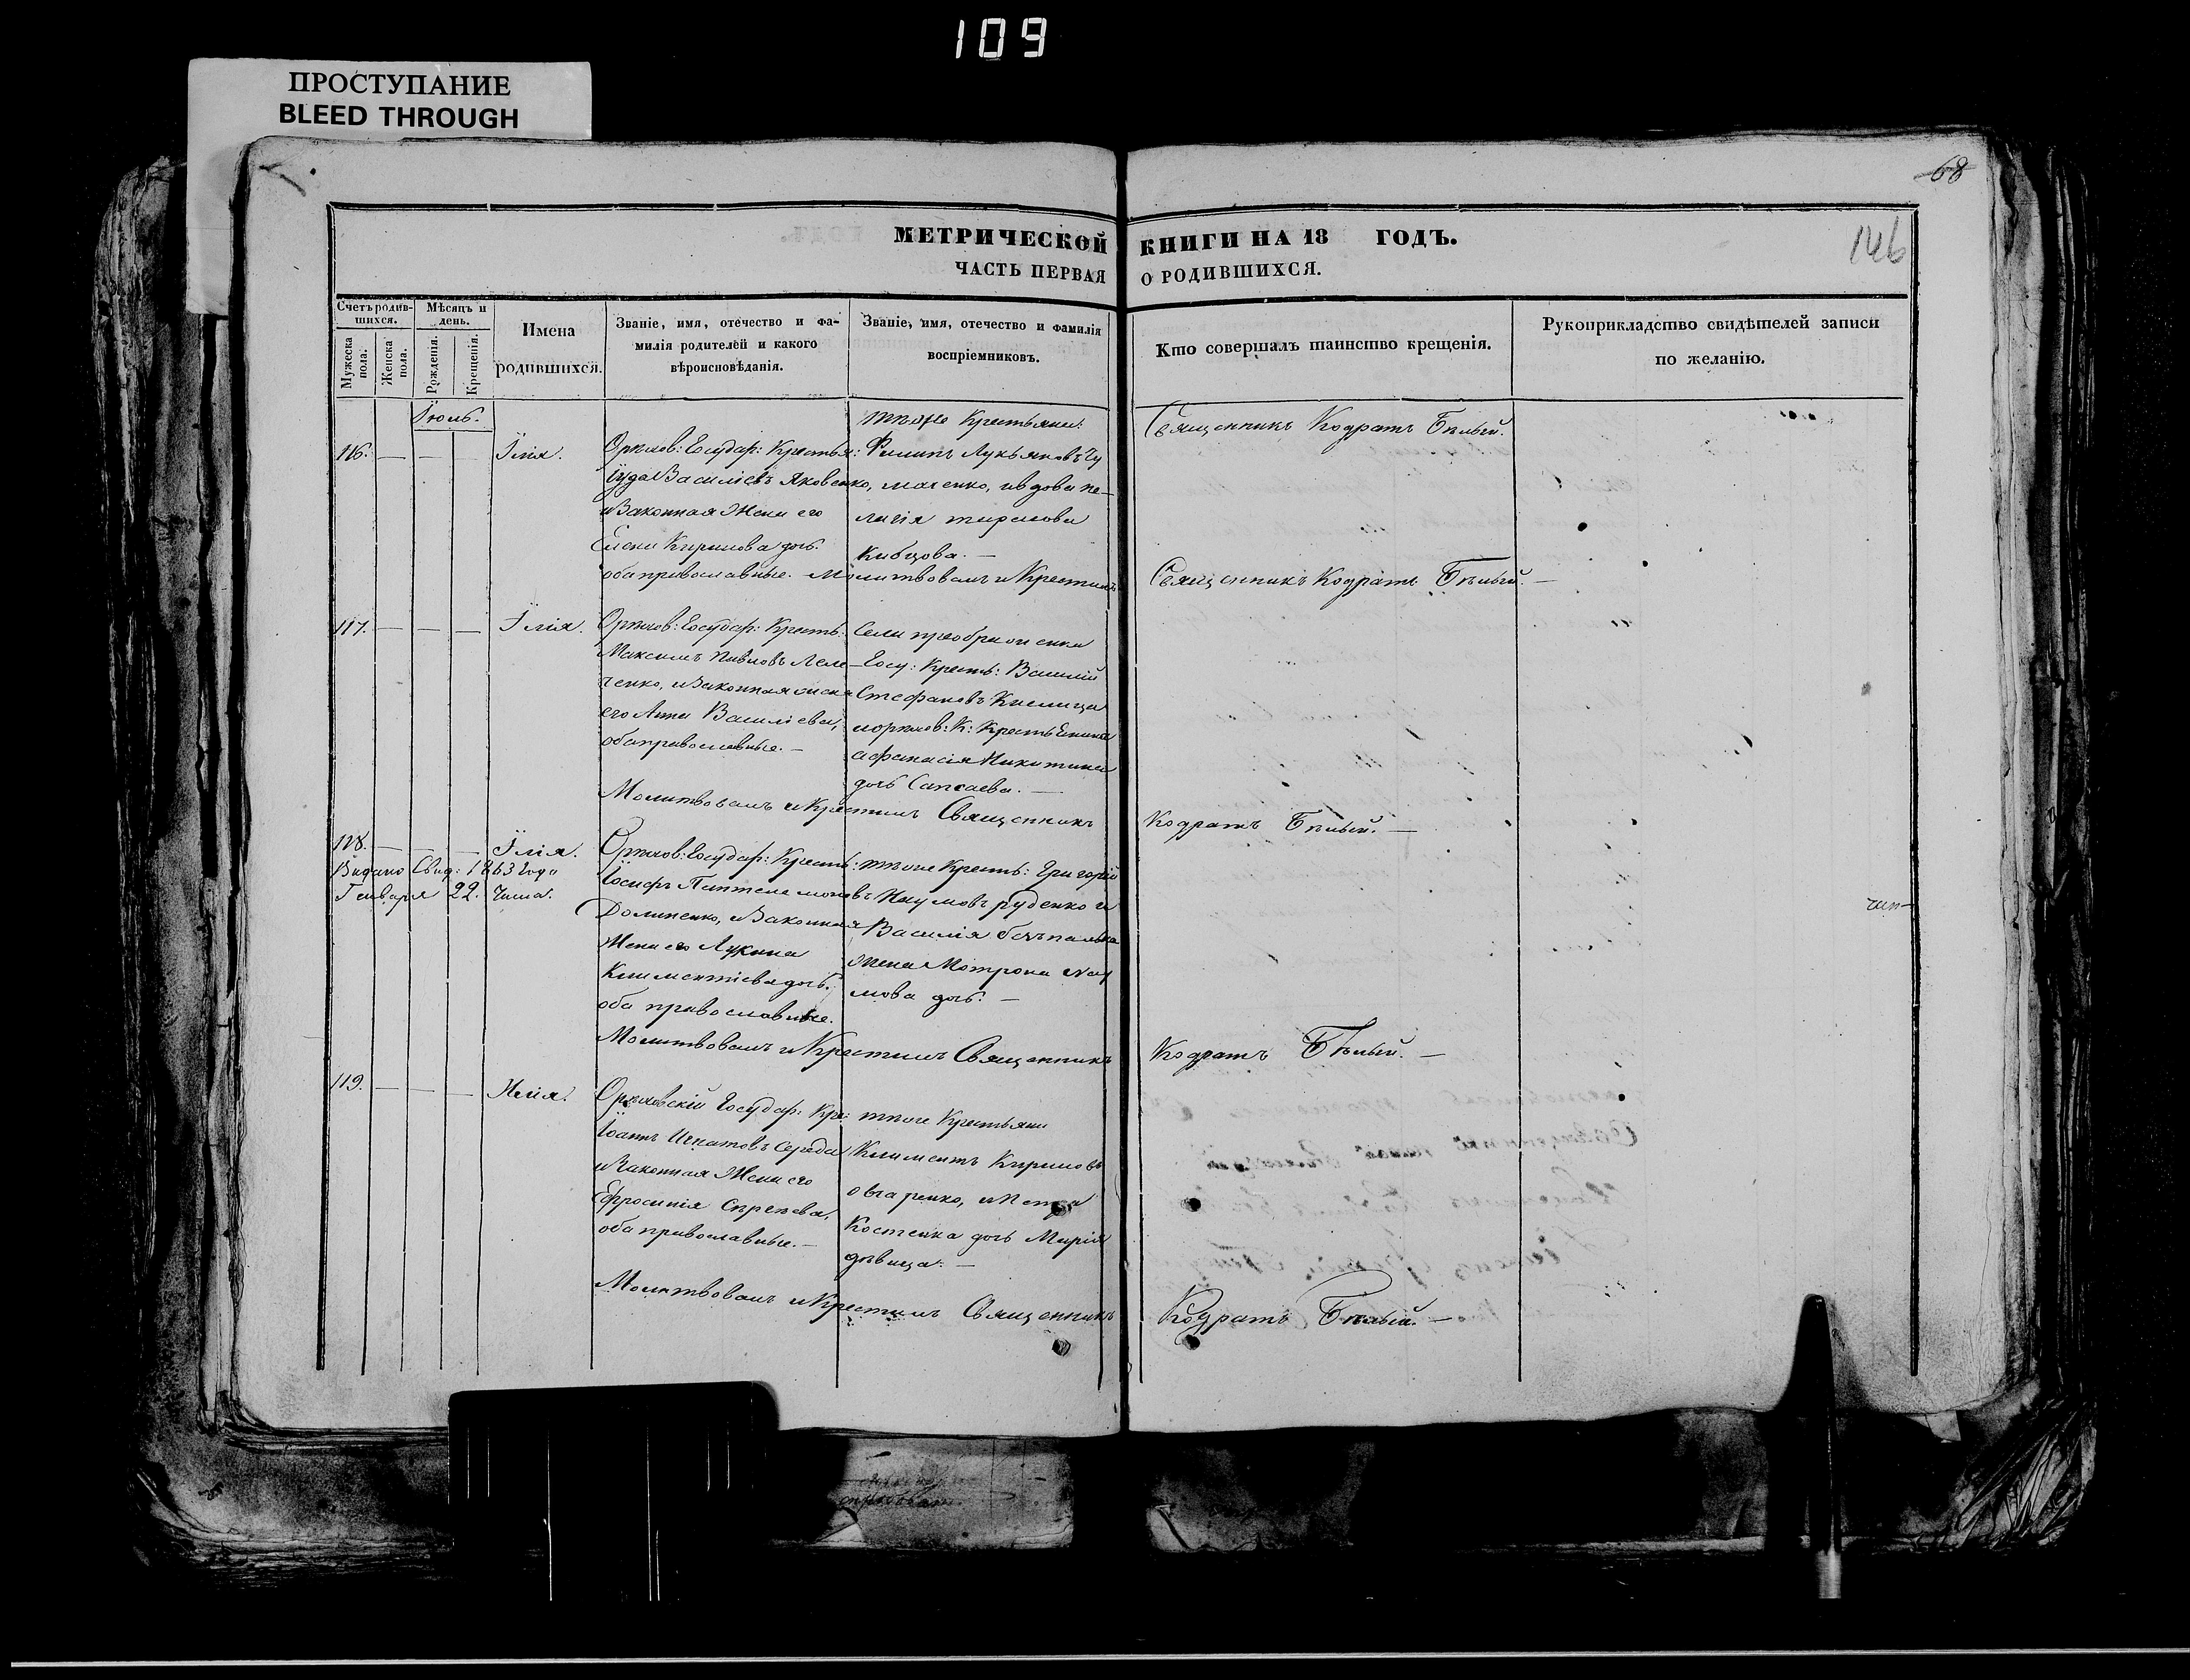 109
ПРОСТУПАНИЕ
BLEED THROUGH
68
146
МЕТРИЧЕСКОЙ КНИГИ НА 18 ГОДЪ.
ЧАСТЬ ПЕРВАЯ О РОДИВШИХСЯ.
Счетъ родившихся.
Мужеска пола.
Женска пола.
Мѣсяцъ и день.
Рожденія.
Крещенія.
Имена родившихся.
Званіе, имя, отечество и фамилія родителей и какого вѣроисповѣданія.
Званіе, имя, отечество и фамилія воспріемниковъ.
Кто совершалъ таинство крещенія.
Рукоприкладство свидѣтелей записи по желанію.
Іюль.
116. — — — Ілія.
Орѣхов: Государ: Крестья:
Іуда Василіевъ Яковенко,
и Законная Жена его
Елена Кирилова дочь.
оба православные.
тѣхже Крестьянин:
Филипъ Лукьяновъ Чу
маченко, и вдова Пе-
лагія
Кибцова. —
Священникъ Кодратъ Бѣлый.
Молитвовалъ и Крестилъ Священникъ Кодратъ Бѣлый. —
117. — — — Ілія.
Орѣхов: Государ: Кресть:
Максимъ Павловъ Леле-
ченко, и Законная жена
его Анна Василіева,
оба православные. —
Села преображенки
Госу: Кресть: Василій
Стефановъ Кислица
и орѣхов: К:
афанасія Никитина
дочь Сапсаева. —
Молитвовалъ и Крестилъ Священникъ Кодратъ Бѣлый. —
118. — — — Ілія.
Видано Свид: 1863 года
Генваря 22. Числа.
Орѣхов: Государ: Кресть:
Іосифъ Пантелемоновъ
Долиненко, и Законная
Жена его Лукина
Климентіева дочь.
оба православные.
тѣхже Кресть: Григорій
Наумовъ руденко и
Василія
жена Мотрона Нау
мова дочь. —
Молитвовалъ и Крестилъ Священникъ Кодратъ Бѣлый. —
119. — — — Илія.
Орѣховскій Государ: Кре:
Іоаннъ Игнатовъ Середа
и Законная Жена его
Ефросинія
оба православные. —
тѣхже Крестьяни
Климентъ Кириловъ
овчаренко, и Петра
Костенка дочь Марія
дѣвица. —
Молитвовалъ и Крестилъ Священникъ Кодратъ Бѣлый. —